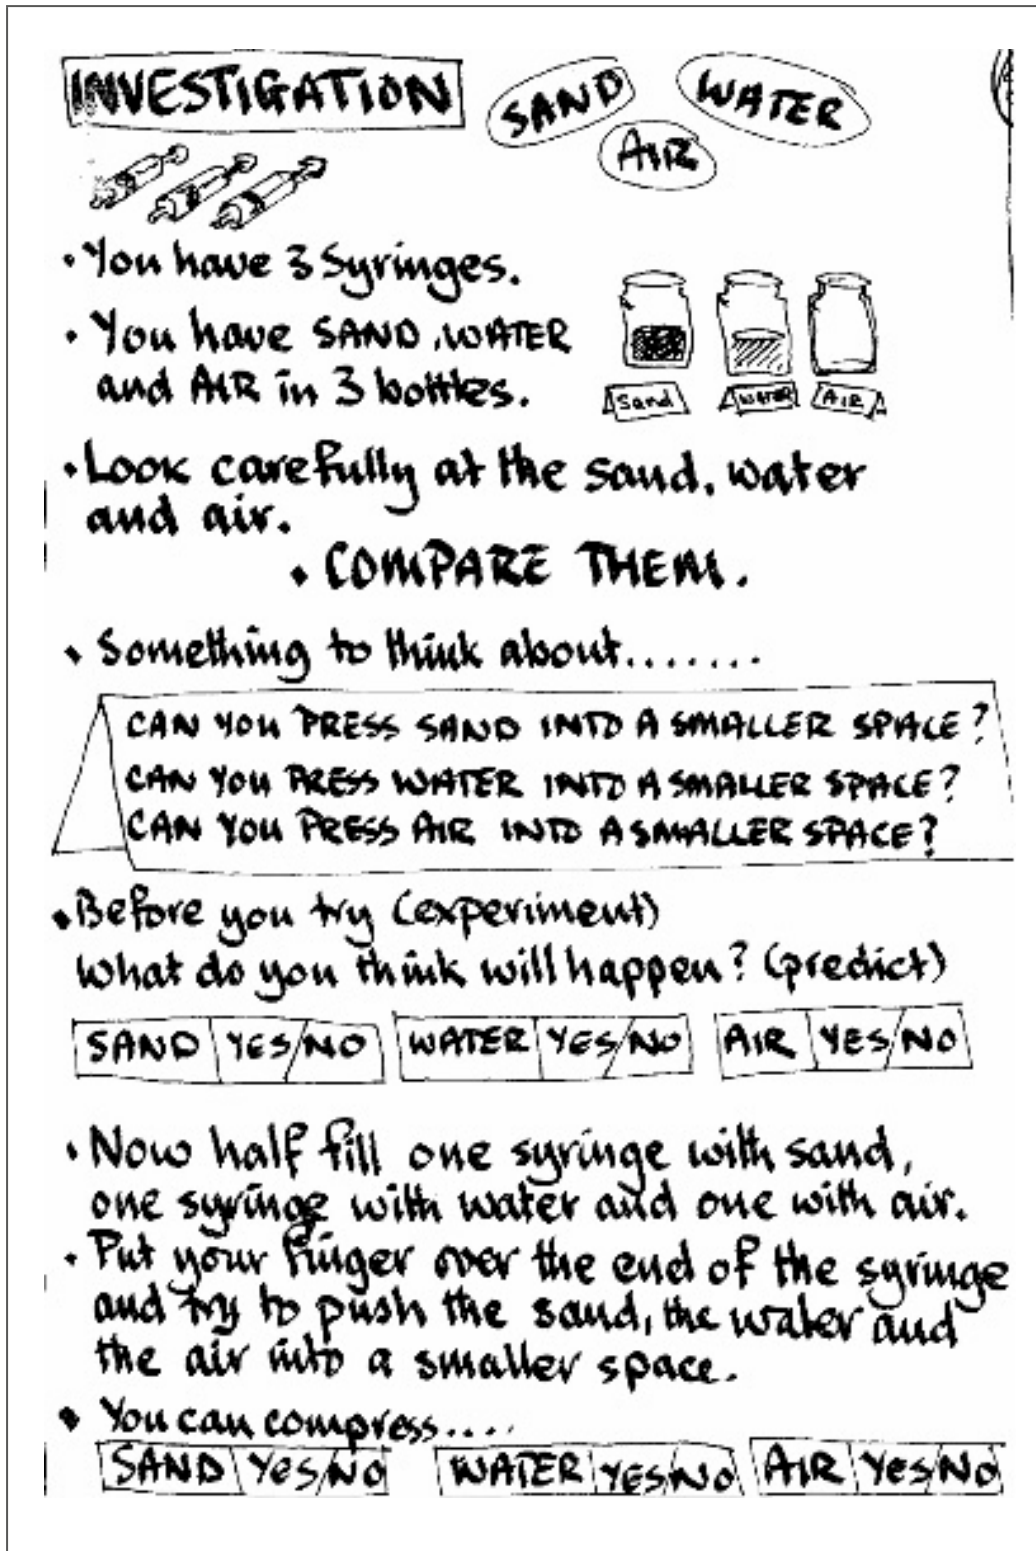 INVESTIGATION
SAND
WATER
AIR
• You have 3 Syringes.
• You have SAND, WATER
and AIR in 3 bottles.
Sand
WATER
AIR
• Look carefully at the sand, water
and air.
• COMPARE THEM.
• Something to think about.......
CAN YOU PRESS SAND INTO A SMALLER SPACE?
CAN YOU PRESS WATER INTO A SMALLER SPACE?
CAN YOU PRESS AIR INTO A SMALLER SPACE?
• Before you try (experiment)
What do you think will happen? (predict)
SAND YES/NO WATER YES/NO AIR YES/NO
• Now half fill one syringe with sand,
one syringe with water and one with air.
• Put your finger over the end of the syringe
and try to push the sand, the water and
the air into a smaller space.
• You can compress....
SAND YES/NO WATER YES/NO AIR YES/NO